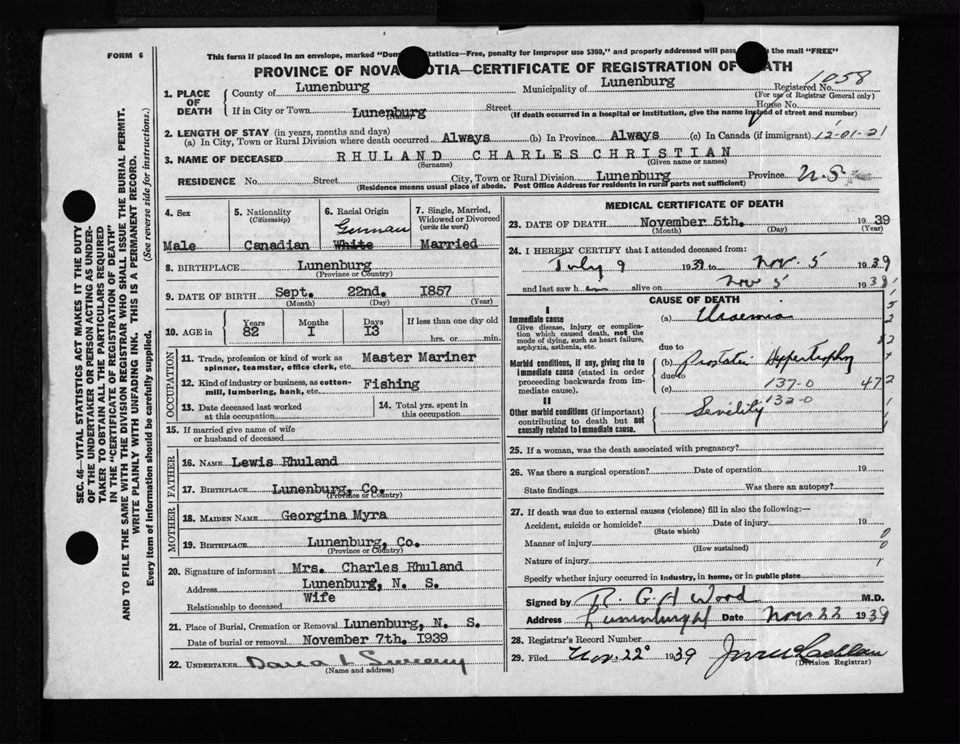 FORM 6
This form if placed in an envelope, marked "Dom Statistics—Free, penalty for improper use $300," and properly addressed will pass the mail "FREE"
PROVINCE OF NOVA SCOTIA—CERTIFICATE OF REGISTRATION OF DEATH
1058
1. PLACE OF DEATH
County of Lunenburg Municipality of Lunenburg Registered No.
(For use of Registrar General only)
If in City or Town Lunenburg Street House No.
(Name)
(If death occurred in a hospital or institution, give the name instead of street and number)
2. LENGTH OF STAY (in years, months and days)
(a) In City, Town or Rural Division where death occurred Always (b) In Province Always (c) In Canada (if immigrant) 12-01-21
3. NAME OF DECEASED RHULAND CHARLES CHRISTIAN
(Surname) (Given name or names)
RESIDENCE No. Street City, Town or Rural Division Lunenburg Province N.S.
(Residence means usual place of abode. Post Office Address for residents in rural parts not sufficient)
4. Sex
Male
5. Nationality
(Citizenship)
Canadian
6. Racial Origin
German
White
7. Single, Married, Widowed or Divorced
(write the word)
Married
8. BIRTHPLACE Lunenburg
(Province or Country)
9. DATE OF BIRTH Sept. 22nd. 1857
(Month) (Day) (Year)
10. AGE in
Years Months Days If less than one day old
82 1 13 hrs. or min.
OCCUPATION
11. Trade, profession or kind of work as spinner, teamster, office clerk, etc. Master Mariner
12. Kind of industry or business, as cotton-mill, lumbering, bank, etc. Fishing
13. Date deceased last worked at this occupation
14. Total yrs. spent in this occupation
15. If married give name of wife or husband of deceased
FATHER
16. NAME Lewis Rhuland
17. BIRTHPLACE Lunenburg, Co.
(Province or Country)
MOTHER
18. MAIDEN NAME Georgina Myra
19. BIRTHPLACE Lunenburg, Co.
(Province or Country)
20. Signature of informant Mrs. Charles Rhuland
Address Lunenburg, N. S.
Relationship to deceased Wife
21. Place of Burial, Cremation or Removal Lunenburg, N. S.
Date of burial or removal November 7th. 1939
22. UNDERTAKER
(Name and address)
MEDICAL CERTIFICATE OF DEATH
23. DATE OF DEATH November 5th. 1939
(Month) (Day) (Year)
24. I HEREBY CERTIFY that I attended deceased from:
July 9 1939 to Nov. 5 1939
and last saw h im alive on Nov 5 1939
CAUSE OF DEATH
I
Immediate cause
Give disease, injury or complication which caused death, not the mode of dying, such as heart failure, asphyxia, asthenia, etc.
(a) Uraemia
due to
Morbid conditions, if any, giving rise to immediate cause (stated in order proceeding backwards from immediate cause).
(b) Prostatic Hypertrophy
due to
(c) 137-0 472
II
Other morbid conditions (if important) contributing to death but not causally related to immediate cause.
Senility 132-0
25. If a woman, was the death associated with pregnancy?
26. Was there a surgical operation? Date of operation 19
State findings Was there an autopsy?
27. If death was due to external causes (violence) fill in also the following:—
Accident, suicide or homicide? Date of injury 19
(State which)
Manner of injury
(How sustained)
Nature of injury
Specify whether injury occurred in industry, in home, or in public place
Signed by R. G. A Wood M.D.
Address Lunenburg Date Nov 22 1939
28. Registrar's Record Number
29. Filed Nov. 22 1939
(Division Registrar)
SEC. 46—VITAL STATISTICS ACT MAKES IT THE DUTY
OF THE UNDERTAKER OR PERSON ACTING AS UNDER-
TAKER TO OBTAIN ALL THE PARTICULARS REQUIRED
IN THE "CERTIFICATE OF REGISTRATION OF DEATH"
AND TO FILE THE SAME WITH THE DIVISION REGISTRAR WHO SHALL ISSUE THE BURIAL PERMIT.
WRITE PLAINLY WITH UNFADING INK. THIS IS A PERMANENT RECORD.
Every item of information should be carefully supplied. (See reverse side for instructions.)